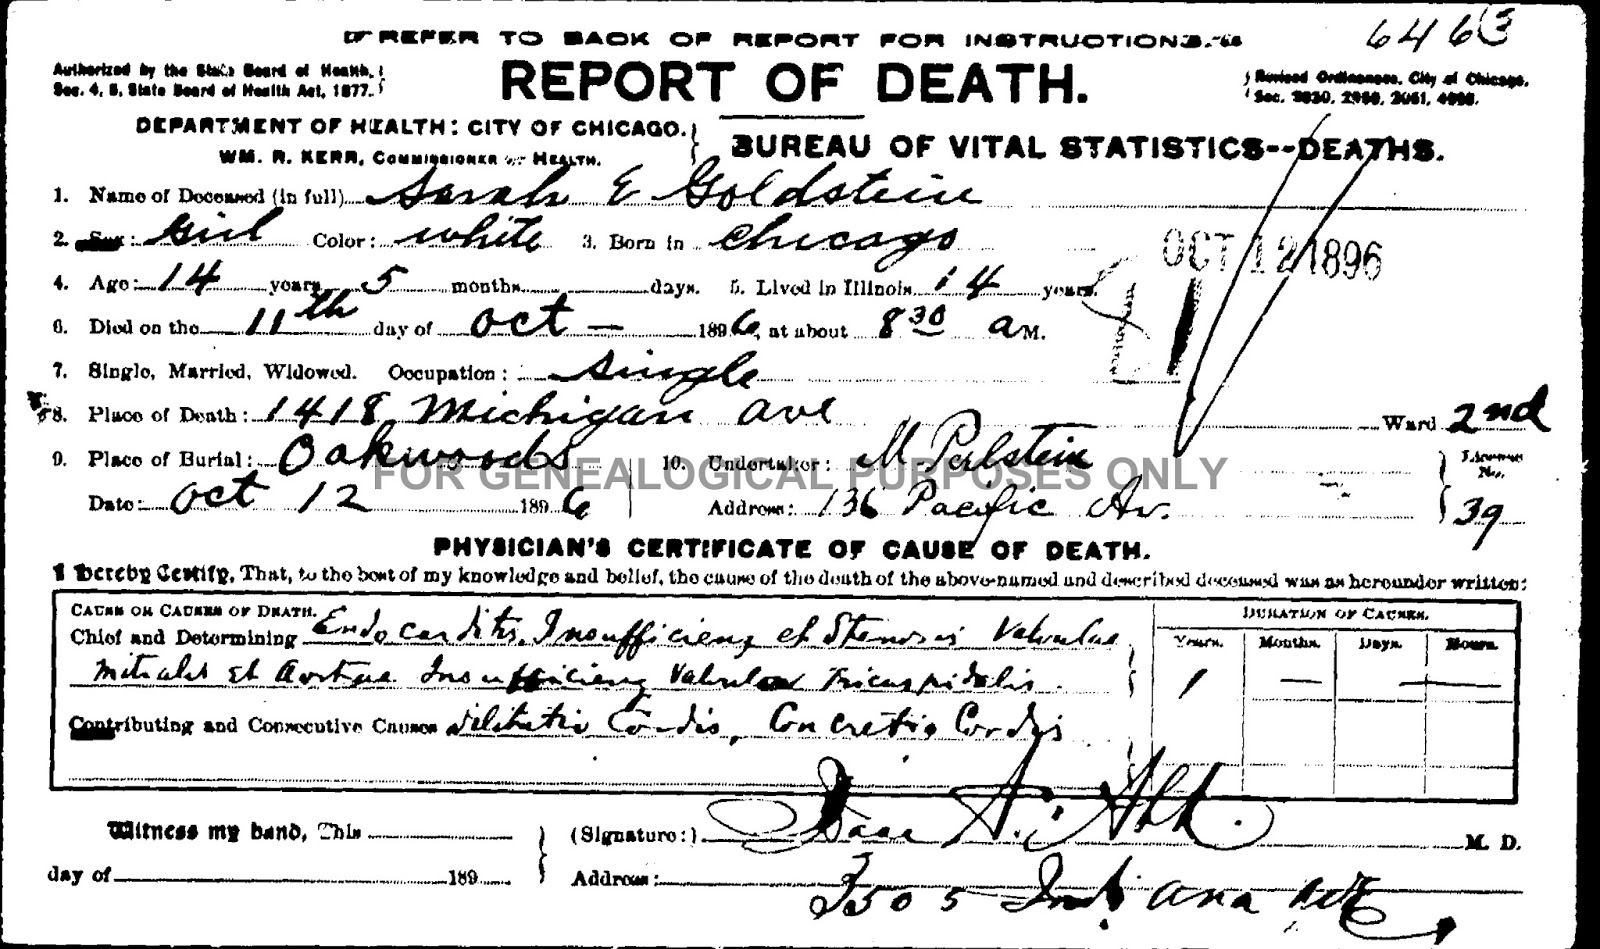 6463
REFER TO BACK OF REPORT FOR INSTRUCTIONS.
Authorized by the State Board of Health,
Sec. 4, 5, State Board of Health Act, 1877.
REPORT OF DEATH.
Revised Ordinances, City of Chicago.
Sec.
DEPARTMENT OF HEALTH: CITY OF CHICAGO.
WM. R. KERR, COMMISSIONER OF HEALTH.
BUREAU OF VITAL STATISTICS--DEATHS.
1. Name of Deceased (in full) Sarah E Goldstein
2. Sex: Girl Color: white 3. Born in Chicago
OCT 12 1896
4. Age: 14 years 5 months days. 5. Lived in Illinois 14 years.
6. Died on the 11th day of Oct — 1896, at about 8 30 a M.
7. Single, Married, Widowed. Occupation: Single
8. Place of Death: 1418 Michigan Ave Ward 2nd
9. Place of Burial: Oakwoods 10. Undertaker: M Perlstein License No.
FOR GENEALOGICAL PURPOSES ONLY
Date: Oct 12 1896 Address: 136 Pacific Av. 39
PHYSICIAN'S CERTIFICATE OF CAUSE OF DEATH.
I Hereby Certify, That, to the best of my knowledge and belief, the cause of the death of the above-named and described deceased was as hereunder written:
CAUSE OR CAUSES OF DEATH. DURATION OF CAUSES.
Chief and Determining Endocarditis, Insufficieny et Stenosis Valvulae Years. Months. Days. Hours.
Mitralis et Aortae Insufficieny Valvulae Tricuspidalis. 1 — —
Contributing and Consecutive Causes Cordis, Concretio Cordis
Witness my hand, This (Signature:) Isaac A. Abt. M. D.
day of 189 Address: 3505 Indiana Ave